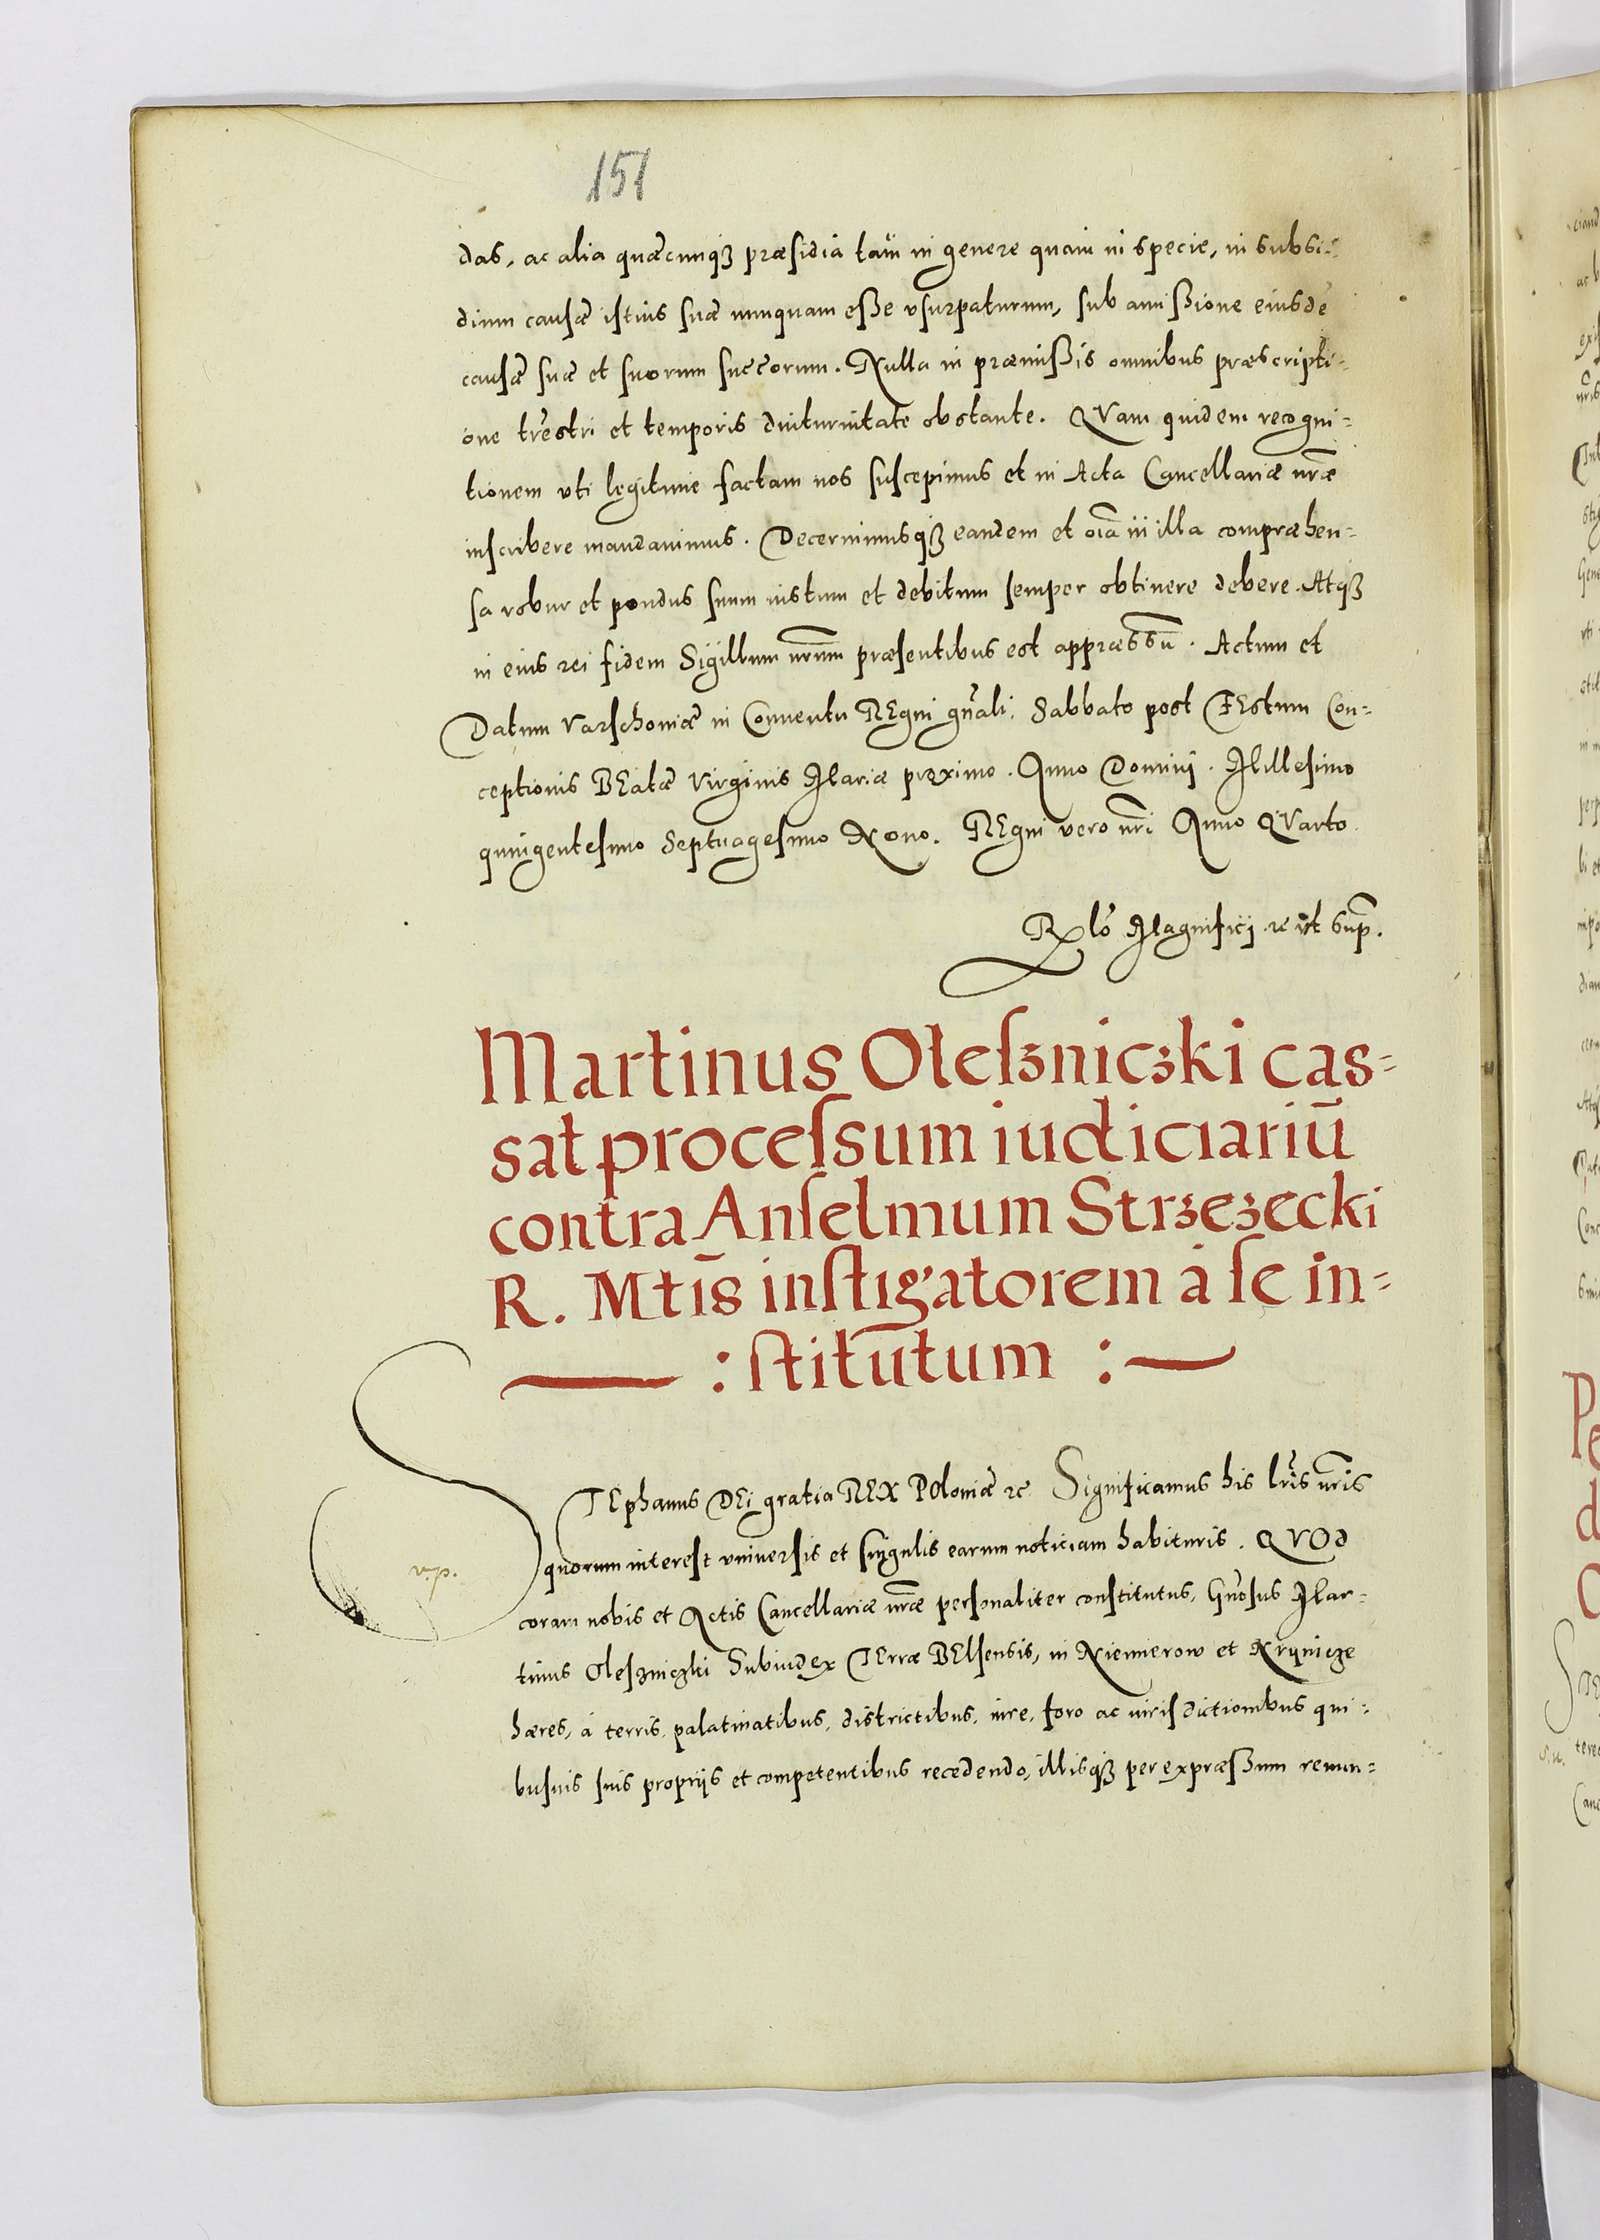 151
das, ac alia quæcunqꝫ præsidia tam̄ in genere quam in specie, in subsi-
dium causæ istius suæ nunquam esse vsurpaturum, sub amissione eiusdē
causæ suæ et suorum succōrum. Nulla in præmissis omnibus præscripti-
one tr̃estri et temporis diuturnitate obstante. QVam quidem recogni-
tionem vti legitime factam nos suscepimus et in Acta Cancellariæ nr̃æ
inscribere mandauimus. Decernimusqꝫ eandem et oĩa in illa compræhen-
sa robur et pondus suum iustum et debitum semper obtinere debere. Atqꝫ
in eius rei fidem Sigillum nr̃um præsentibus est appræssū. Actum et
Datum Varschouiæ in Conuentu REgni gñali, Sabbato post FEstum Con-
ceptionis BEatæ Virginis Mariæ proximo. Anno Domini. Millesimo
quingentesimo Septuagesimo Nono. REgni vero nr̃i Anno QVarto
Rlō Magnifici ꝛc vt Sup̄.
Martinus Oleszniczki cas-
sat processum iudiciariū
contra Anselmum Strzezecki
R. Mt̄is instigatorem à se in-
: stitutum :
STEphanus DEi gratia REX POloniæ ꝛc Significamus his lr̃is nr̃is
quorum interest vniuersis et singulis earum noticiam habituris. QVOd
coram nobis et Actis Cancellariæ nr̃æ personaliter constitutus, Gñosus Mar-
tinus Oleszniczki Subiudex TErræ BElsensis, in Niemierow et Krynicze
hæres, à terris, palatinatibus, districtibus, iure, foro ac iurisdictionibus qui-
busuis suis proprijs et competentibus recedendo, illisqꝫ per expræssum renun-